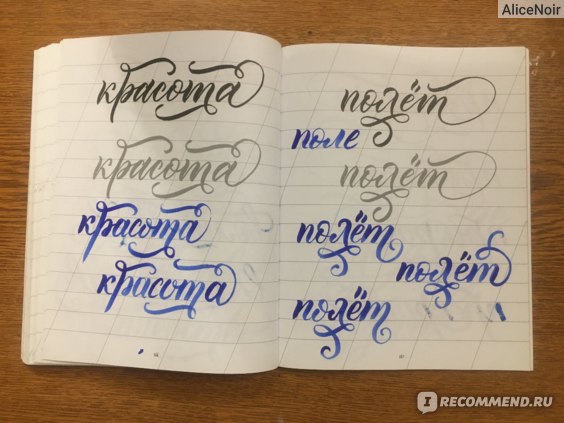 AliceNoir
красота
красота
красота
красота
полёт
поле
полёт
полёт
полёт
полёт
IRECOMMEND.RU